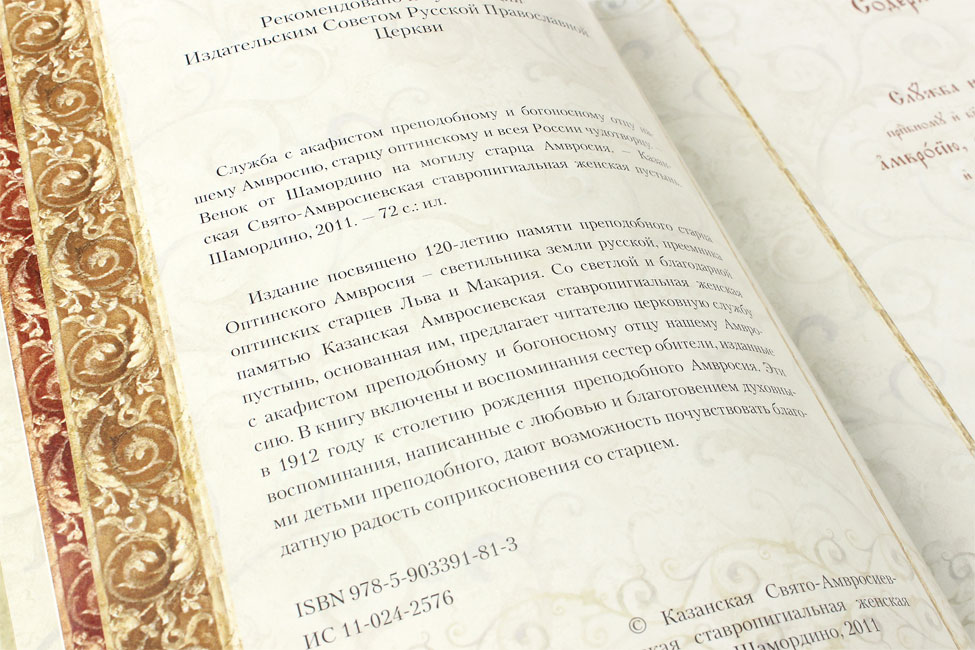 Рекомендовано
Издательским Советом Русской Православной
Церкви
Служба с акафистом преподобному и богоносному отцу на-
шему Амвросию, старцу оптинскому и всея России чудотворцу. –
Венок от Шамордино на могилу старца Амвросия. – Казан-
ская Свято-Амвросиевская ставропигиальная женская пустынь.
Шамордино, 2011. – 72 с.: ил.
Издание посвящено 120-летию памяти преподобного старца
Оптинского Амвросия – светильника земли русской, преемника
оптинских старцев Льва и Макария. Со светлой и благодарной
памятью Казанская Амвросиевская ставропигиальная женская
пустынь, основанная им, предлагает читателю церковную службу
с акафистом преподобному и богоносному отцу нашему Амвро-
сию. В книгу включены и воспоминания сестер обители, изданные
в 1912 году к столетию рождения преподобного Амвросия. Эти
воспоминания, написанные с любовью и благоговением духовны-
ми детьми преподобного, дают возможность почувствовать благо-
датную радость соприкосновения со старцем.
ISBN 978-5-903391-81-3
ИС 11-024-2576
© Казанская Свято-Амвросиев-
ская ставропигиальная женская
Шамордино, 2011
Содер
Служба